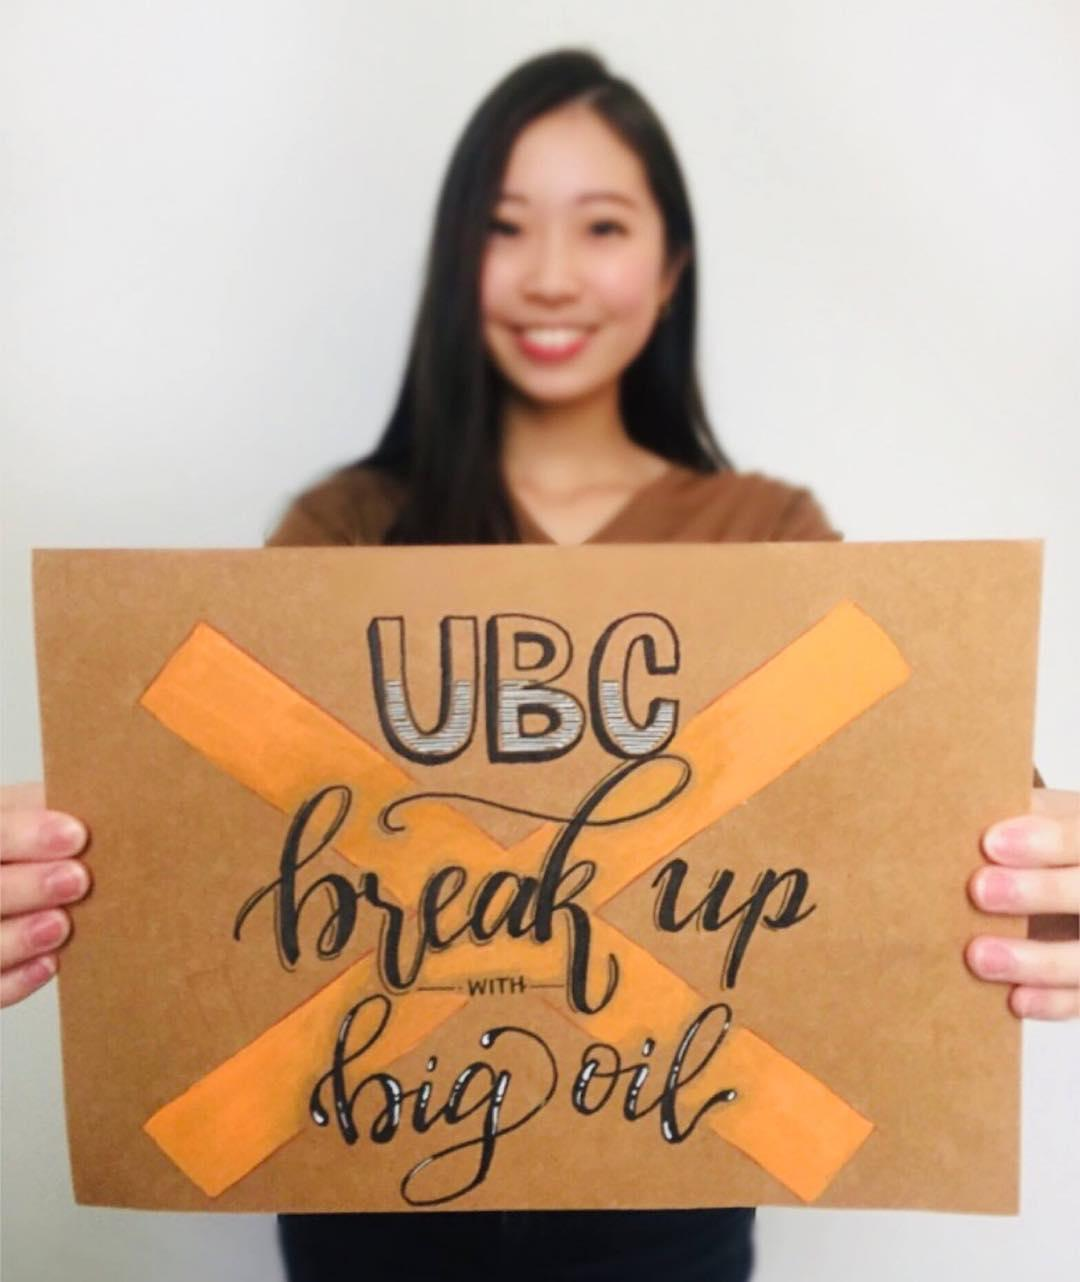 UBC
break up
WITH
big oil